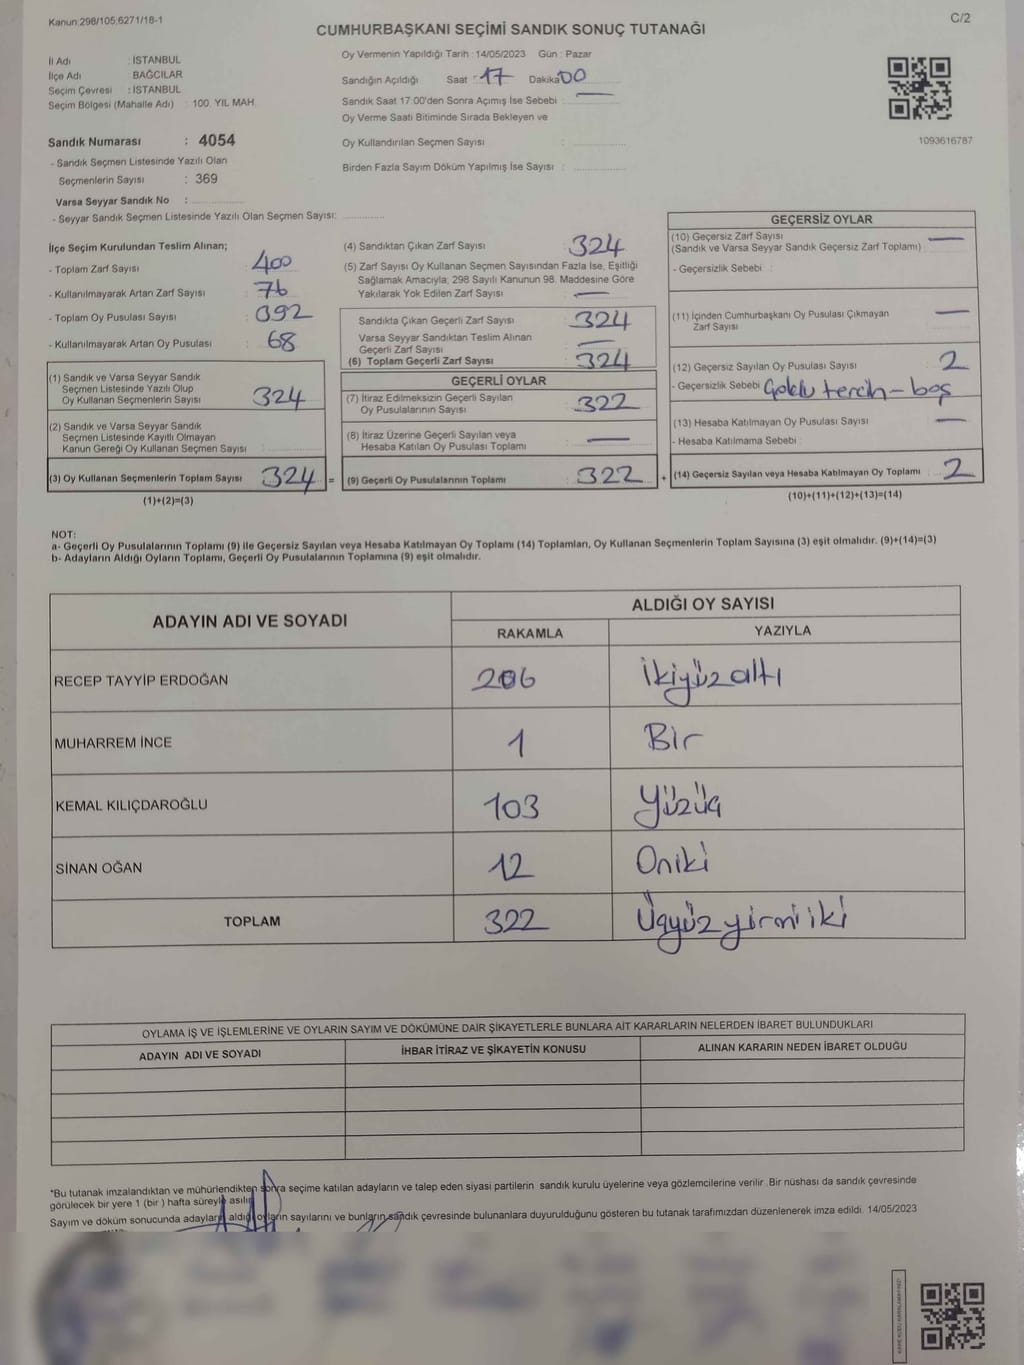 Kanun:298/105;6271/18-1
C/2
CUMHURBAŞKANI SEÇİMİ SANDIK SONUÇ TUTANAĞI
İl Adı : İSTANBUL
İlçe Adı BAĞCILAR
Seçim Çevresi : İSTANBUL
Seçim Bölgesi (Mahalle Adı) : 100. YIL MAH.
Sandık Numarası : 4054
- Sandık Seçmen Listesinde Yazılı Olan
Seçmenlerin Sayısı : 369
Varsa Seyyar Sandık No :
- Seyyar Sandık Seçmen Listesinde Yazılı Olan Seçmen Sayısı:
Oy Vermenin Yapıldığı Tarih : 14/05/2023 Gün : Pazar
Sandığın Açıldığı Saat : 17 Dakika 00
Sandık Saat 17:00'den Sonra Açımış İse Sebebi : —
Oy Verme Saati Bitiminde Sırada Bekleyen ve
Oy Kullandırılan Seçmen Sayısı :
Birden Fazla Sayım Döküm Yapılmış İse Sayısı :
1093616787
İlçe Seçim Kurulundan Teslim Alınan;
- Toplam Zarf Sayısı : 400
- Kullanılmayarak Artan Zarf Sayısı : 76
- Toplam Oy Pusulası Sayısı : 392
- Kullanılmayarak Artan Oy Pusulası : 68
(1) Sandık ve Varsa Seyyar Sandık
Seçmen Listesinde Yazılı Olup
Oy Kullanan Seçmenlerin Sayısı : 324
(2) Sandık ve Varsa Seyyar Sandık
Seçmen Listesinde Kayıtlı Olmayan
Kanun Gereği Oy Kullanan Seçmen Sayısı :
(3) Oy Kullanan Seçmenlerin Toplam Sayısı : 324 =
(1)+(2)=(3)
(4) Sandıktan Çıkan Zarf Sayısı : 324
(5) Zarf Sayısı Oy Kullanan Seçmen Sayısından Fazla İse, Eşitliği
Sağlamak Amacıyla, 298 Sayılı Kanunun 98. Maddesine Göre
Yakılarak Yok Edilen Zarf Sayısı : —
Sandıkta Çıkan Geçerli Zarf Sayısı : 324
Varsa Seyyar Sandıktan Teslim Alınan
Geçerli Zarf Sayısı : —
(6) Toplam Geçerli Zarf Sayısı : 324
GEÇERLİ OYLAR
(7) İtiraz Edilmeksizin Geçerli Sayılan
Oy Pusulalarının Sayısı : 322
(8) İtiraz Üzerine Geçerli Sayılan veya
Hesaba Katılan Oy Pusulası Toplamı : —
(9) Geçerli Oy Pusulalarının Toplamı : 322 +
GEÇERSİZ OYLAR
(10) Geçersiz Zarf Sayısı : —
(Sandık ve Varsa Seyyar Sandık Geçersiz Zarf Toplamı) :
- Geçersizlik Sebebi :
(11) İçinden Cumhurbaşkanı Oy Pusulası Çıkmayan
Zarf Sayısı : —
(12) Geçersiz Sayılan Oy Pusulası Sayısı : 2
- Geçersizlik Sebebi : Çoklu tercih - boş
(13) Hesaba Katılmayan Oy Sayısı : —
- Hesaba Katılmama Sebebi :
(14) Geçersiz Sayılan veya Hesaba Katılmayan Oy Toplamı : 2
(10)+(11)+(12)+(13)=(14)
NOT:
a- Geçerli Oy Pusulalarının Toplamı (9) ile Geçersiz Sayılan veya Hesaba Katılmayan Oy Toplamı (14) Toplamları, Oy Kullanan Seçmenlerin Toplam Sayısına (3) eşit olmalıdır. (9)+(14)=(3)
b- Adayların Aldığı Oyların Toplamı, Geçerli Oy Pusulalarının Toplamına (9) eşit olmalıdır.
ADAYIN ADI VE SOYADI ALDIĞI OY SAYISI
RAKAMLA YAZIYLA
RECEP TAYYİP ERDOĞAN 206 İkiyüzaltı
MUHARREM İNCE 1 Bir
KEMAL KILIÇDAROĞLU 103 Yüzüç
SİNAN OĞAN 12 Oniki
TOPLAM 322 Üçyüzyirmiiki
OYLAMA İŞ VE İŞLEMLERİNE VE OYLARIN SAYIM VE DÖKÜMÜNE DAİR ŞİKAYETLERLE BUNLARA AİT KARARLARIN NELERDEN İBARET BULUNDUKLARI
ADAYIN ADI VE SOYADI İHBAR İTİRAZ VE ŞİKAYETİN KONUSU ALINAN KARARIN NEDEN İBARET OLDUĞU
*Bu tutanak imzalandıktan ve mühürlendikten sonra seçime katılan adayların ve talep eden siyasi partilerin sandık kurulu üyelerine veya gözlemcilerine verilir .Bir nüshası da sandık çevresinde
görülecek bir yere 1 (bir ) hafta süreyle asılır.
Sayım ve döküm sonucunda adayların aldığı oyların sayılarını ve bunların sandık çevresinde bulunanlara duyurulduğunu gösteren bu tutanak tarafımızdan düzenlenerek imza edildi. 14/05/2023